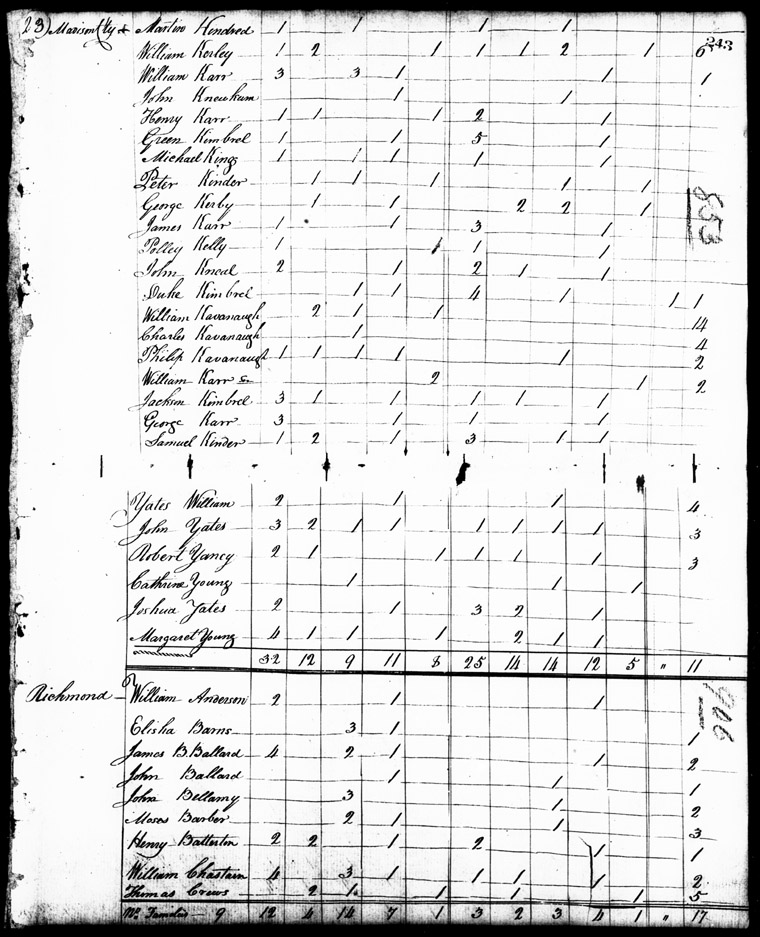 23) Madison Cty + Martin Hendred 1 1 1 1
William Kerley 1 2 1 1 1 2 1 6
243
William Karr 3 3 1 1 1
John Kneuhum 1 1
Henry Karr 1 1 1 2 1
Green Kimbrel 1 1 5 1
Michael King 1 1 1 1 1
Peter Kinder 1 1 1 1 1
George Kerby 1 1 2 2 1
James Karr 1 1 3 1
853
Polley Kelly 1 1 1 1
John Kneal 2 1 2 1 1
Duke Kimbrel 1 1 4 1 1 1
William Kavanaugh 2 1 1 14
Charles Kavanaugh 1 4
Philip Kavanaugt 1 1 1 1 1 2
William Karr 2 1 2
Jackson Kimbrel 3 1 1 1 1 1
George Karr 3 1 1 1
Samuel Kinder 1 2 1 3 1 1
Yates William 2 1 1 4
John Yates 3 2 1 1 1 1 1 1 3
Robert Yancy 2 1 1 1 1 1 3
Cathrine Young 1 1 1
Joshua Yates 2 1 3 2 1
Margaret Young 4 1 1 1 2 1 1
32 12 9 11 8 25 14 14 12 5 " 11
Richmond William Anderson 2 1 1
906
Elisha Barns 3 1 1
James B. Ballard 4 2 1 1 2
John Ballard 1 1 1
John Bellamy 3 1 2
Moses Barber 2 1 1 3
Henry Batterton 2 2 1 2 1 1
William Chastain 4 3 1 1 1 1 2
Thomas Crews 2 1 1 1 1 5
No. Families 9 12 4 14 7 1 3 2 3 4 1 " 17